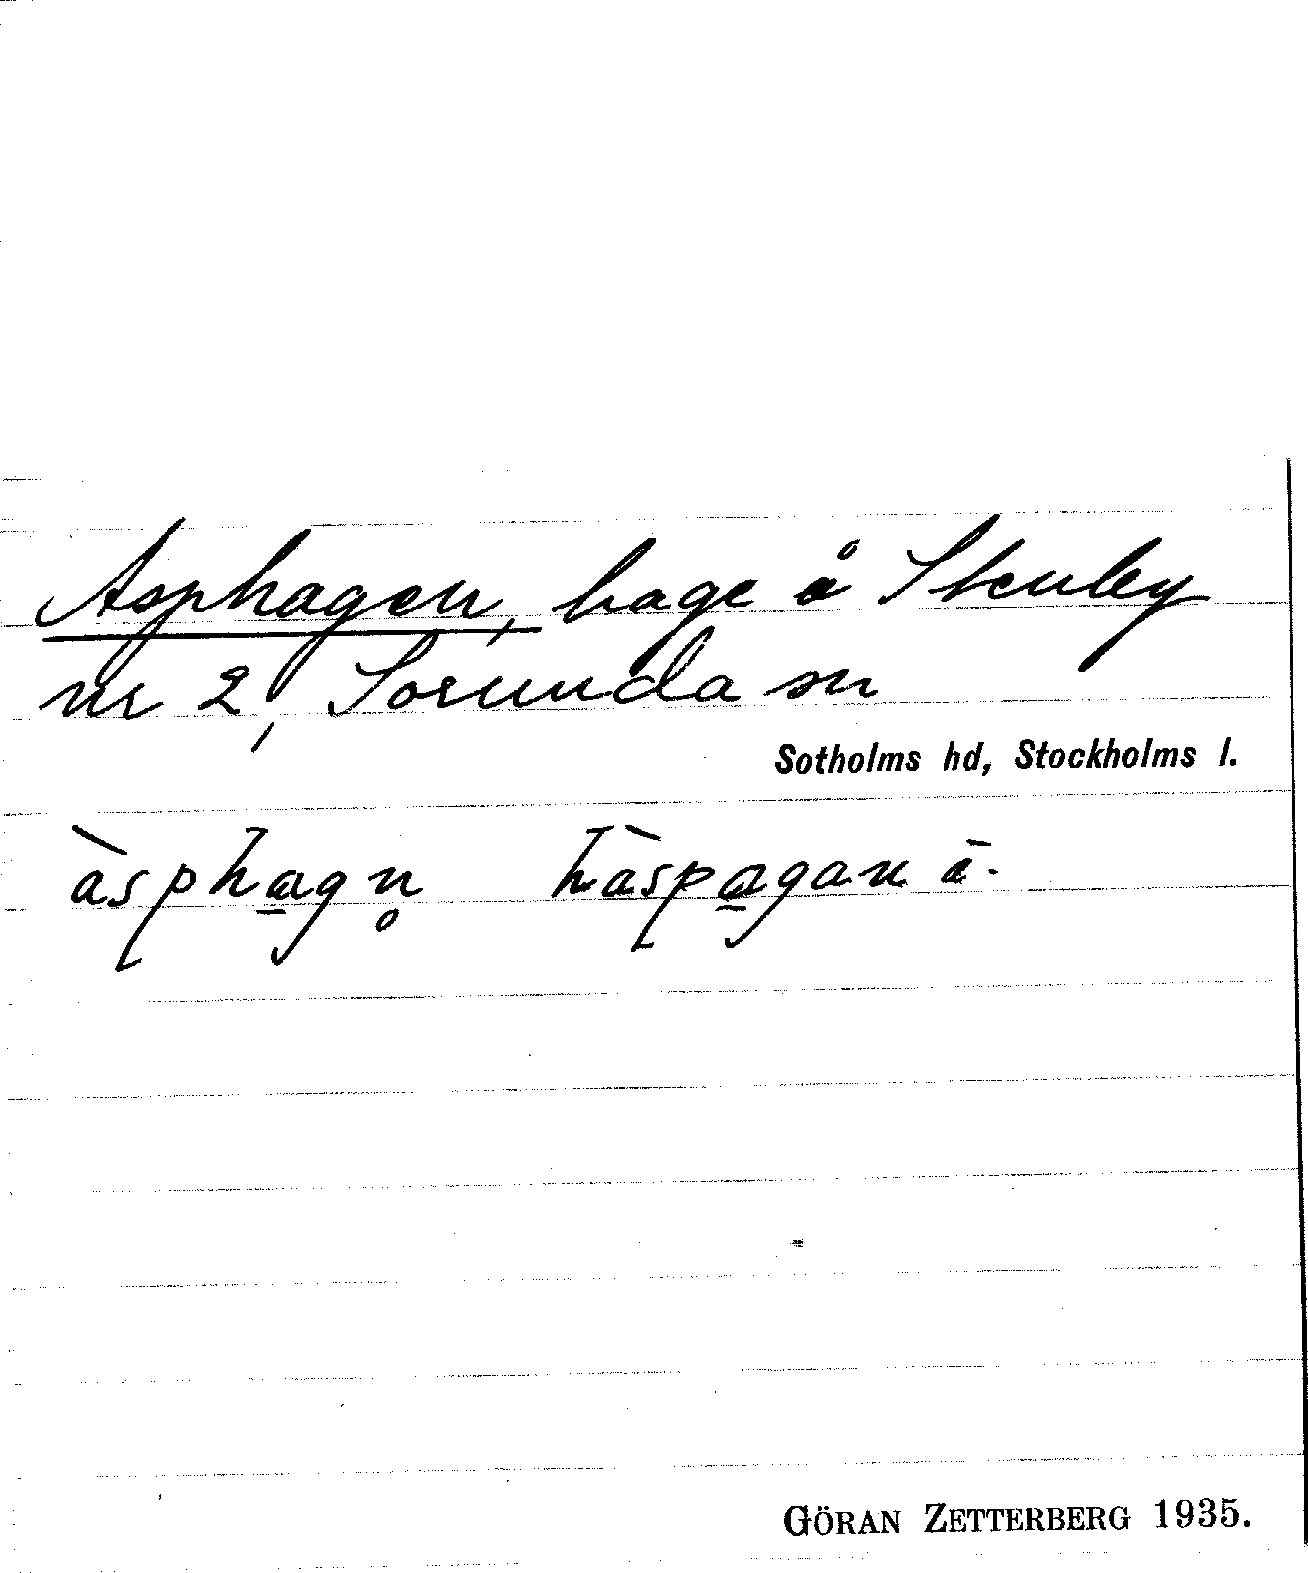 Asphagen, hage å Stenby
nr 2, Sorunda sn
Sotholms hd, Stockholms l.
àspha̲gn̥ hàspa̲gan ā.
GÖRAN ZETTERBERG 1935.